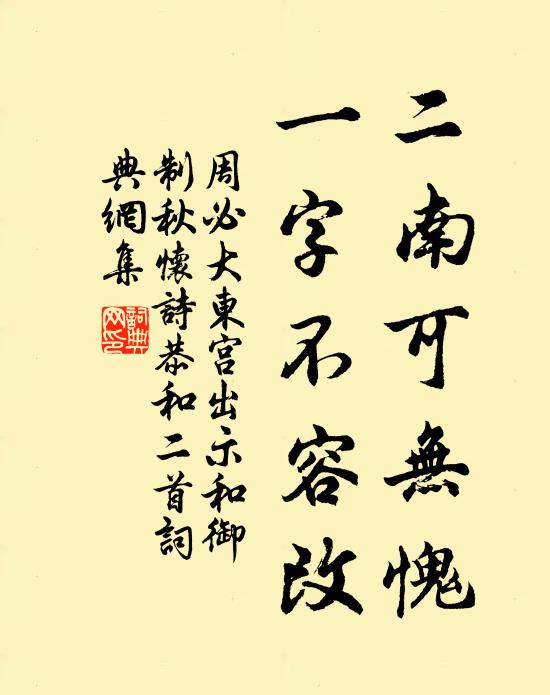 二南可無愧
一字不容改
周必大東宮出示和御
制秋懷詩恭和二首詞
典網集
詞典
网印